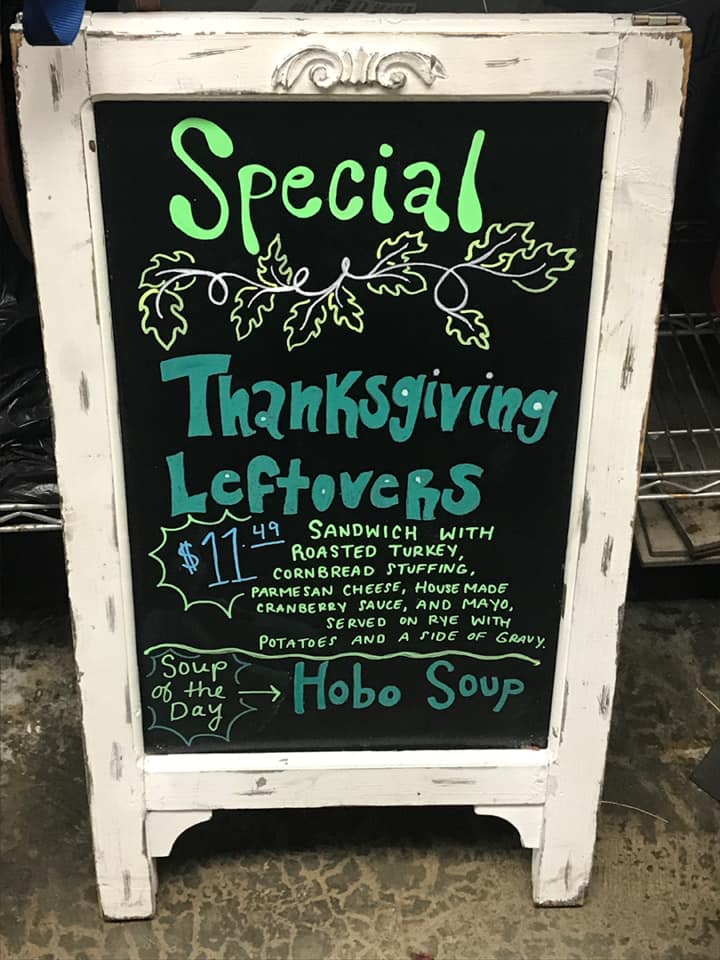 Special
Thanksgiving
Leftovers
$11.49
SANDWICH WITH
ROASTED TURKEY,
CORNBREAD STUFFING,
PARMESAN CHEESE, HOUSE MADE
CRANBERRY SAUCE, AND MAYO,
SERVED ON RYE WITH
POTATOES AND A SIDE OF GRAVY.
Soup
of the
Day
→ Hobo Soup